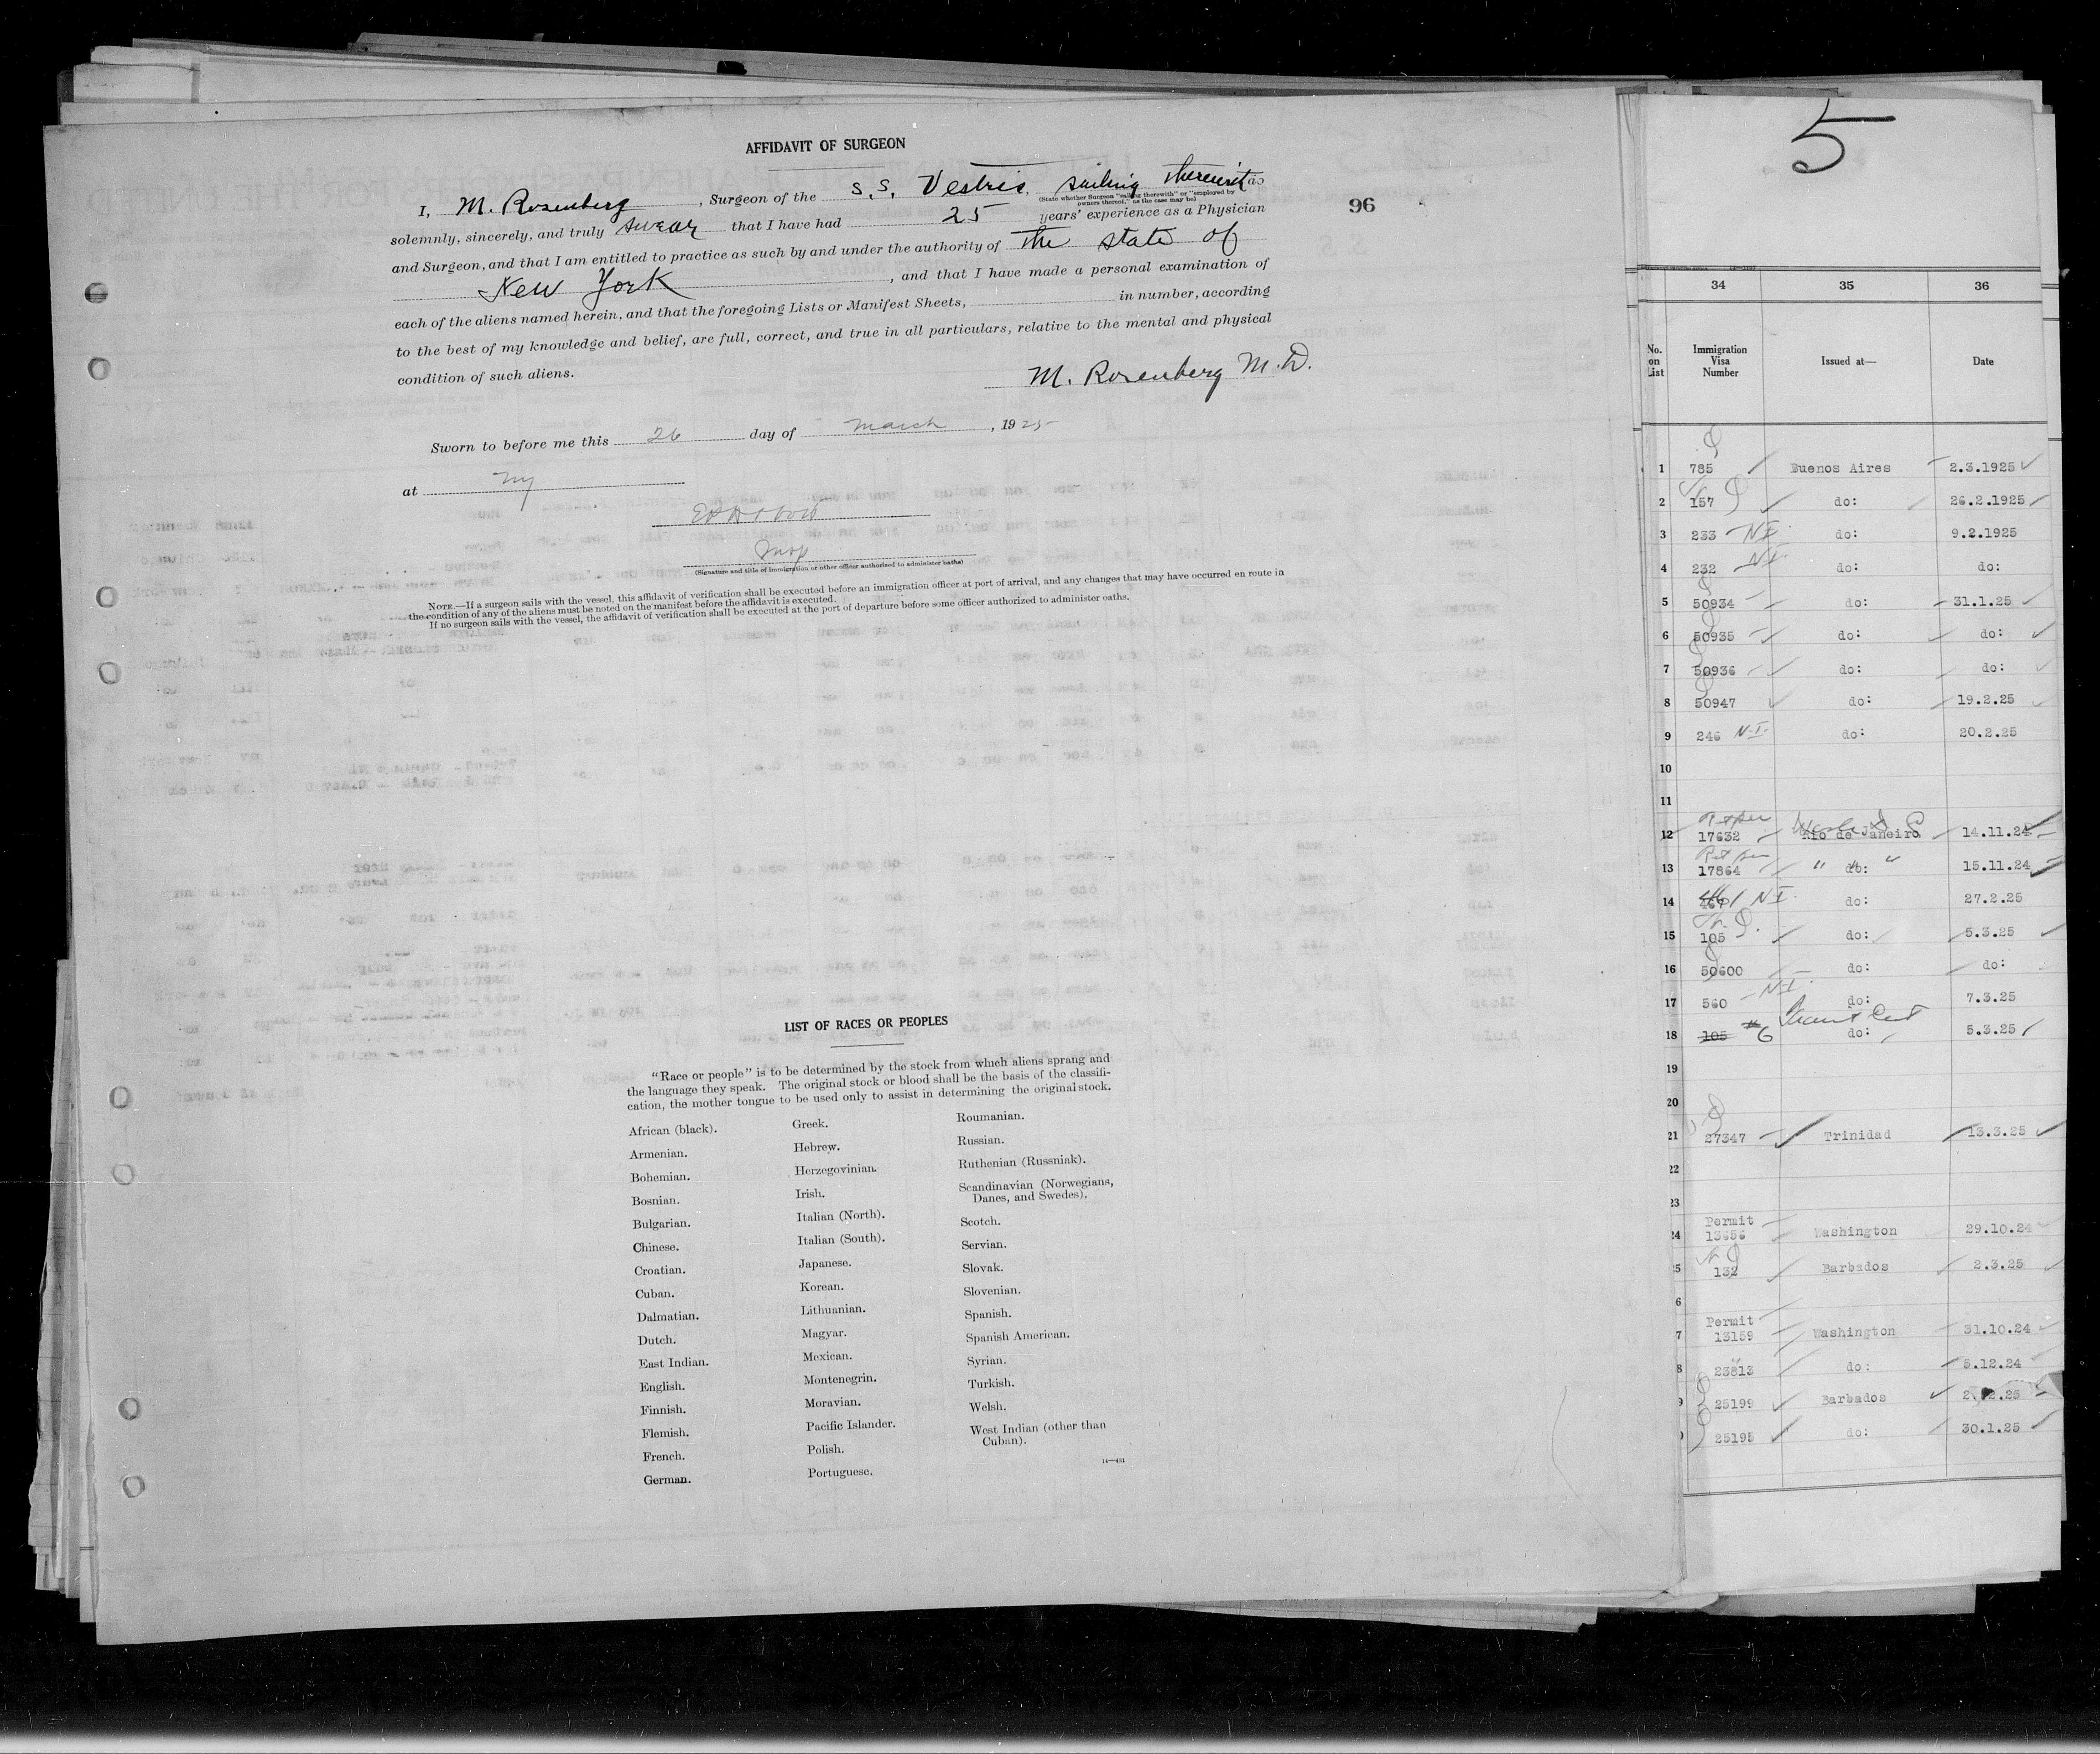 AFFIDAVIT OF SURGEON
I, M. Rosenberg, Surgeon of the S.S. Vestris, sailing therewith as
(State whether Surgeon "sailing therewith" or "employed by
owners thereof," as the case may be)
solemnly, sincerely, and truly swear that I have had 25 years' experience as a Physician
and Surgeon, and that I am entitled to practice as such by and under the authority of The state of
New York, and that I have made a personal examination of
each of the aliens named herein, and that the foregoing Lists or Manifest Sheets, in number, according
to the best of my knowledge and belief, are full, correct, and true in all particulars, relative to the mental and physical
condition of such aliens.
M. Rosenberg M.D.
Sworn to before me this 26 day of March, 1925
at NY
Insp
(Signature and title of immigration or other officer authorized to administer oaths)
NOTE.—If a surgeon sails with the vessel, this affidavit of verification shall be executed before an immigration officer at port of arrival, and any changes that may have occurred en route in
the condition of any of the aliens must be noted on the manifest before the affidavit is executed.
If no surgeon sails with the vessel, the affidavit of verification shall be executed at the port of departure before some officer authorized to administer oaths.
96
LIST OF RACES OR PEOPLES
"Race or people" is to be determined by the stock from which aliens sprang and
the language they speak. The original stock or blood shall be the basis of the classifi-
cation, the mother tongue to be used only to assist in determining the original stock.
African (black).
Armenian.
Bohemian.
Bosnian.
Bulgarian.
Chinese.
Croatian.
Cuban.
Dalmatian.
Dutch.
East Indian.
English.
Finnish.
Flemish.
French.
German.
Greek.
Hebrew.
Herzegovinian.
Irish.
Italian (North).
Italian (South).
Japanese.
Korean.
Lithuanian.
Magyar.
Mexican.
Montenegrin.
Moravian.
Pacific Islander.
Polish.
Portuguese.
Roumanian.
Russian.
Ruthenian (Russniak).
Scandinavian (Norwegians,
Danes, and Swedes).
Scotch.
Servian.
Slovak.
Slovenian.
Spanish.
Spanish American.
Syrian.
Turkish.
Welsh.
West Indian (other than
Cuban).
14—431
5
34 35 36
No. on List Immigration Visa Number Issued at— Date
1 785 Buenos Aires 2.3.1925
2 157 do: 26.2.1925
3 233 N.I. do: 9.2.1925
4 232 N.I. do: do:
5 50934 do: 31.1.25
6 50935 do: do:
7 50936 do: do:
8 50947 do: 19.2.25
9 246 N.I. do: 20.2.25
10
11
Ret per
12 17632 Rio de Janeiro 14.11.24
Ret per
13 17864 " do: " 15.11.24
14 N.I. do: 27.2.25
15 105 do: 5.3.25
16 50600 do: do:
17 560 N.I. do: 7.3.25
18 105 #6 do: 5.3.25
19
20
21 27347 Trinidad 13.3.25
22
23
Permit
24 13656 Washington 29.10.24
5 132 Barbados 2.3.25
6
Permit
7 13159 Washington 31.10.24
8 23813 do: 5.12.24
9 25199 Barbados
25195 do: 30.1.25